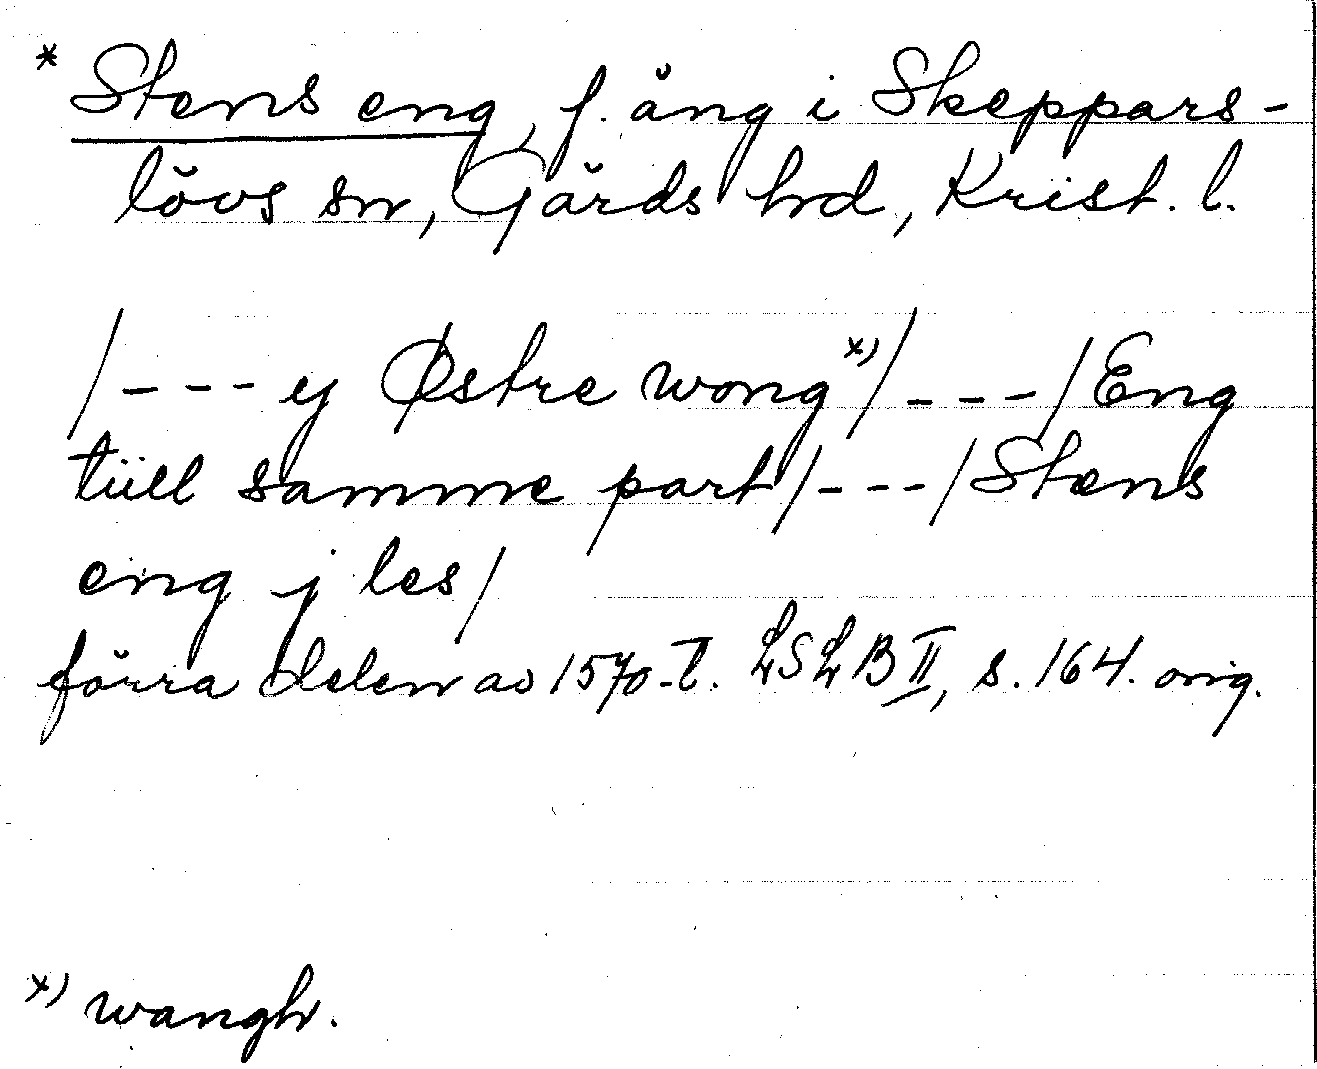 * Stens eng, f. äng i Skeppars-
lövs sn, Gärds hd, Krist. l.
/--- y Østre wong x)/---/Eng
tiill samme part/---/Stens
eng j les/
förra delen av 1570-t. LSLB II, s. 164. orig.
x) wangh.